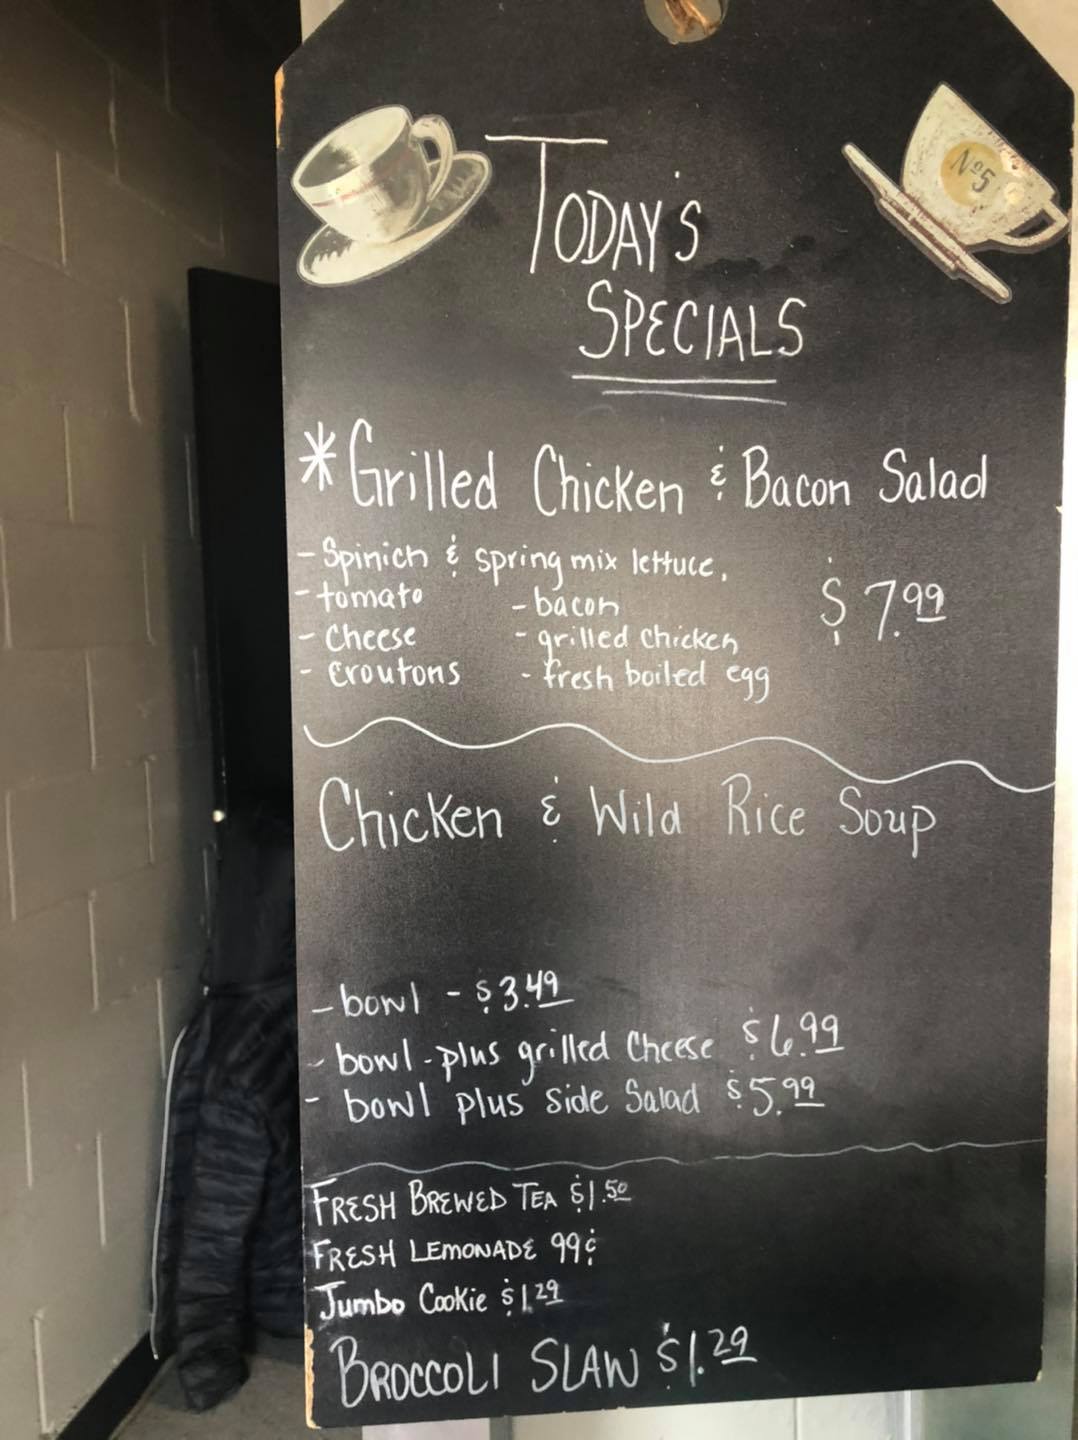 Nº5
TODAY'S
SPECIALS
*Grilled Chicken & Bacon Salad
- Spinich & spring mix lettuce,
- tomato - bacon
- Cheese - grilled chicken
- croutons - fresh boiled egg
$7.99
Chicken & Wild Rice Soup
- bowl - $3.49
- bowl - plus grilled Cheese $6.99
- bowl plus side Salad $5.99
FRESH BREWED TEA $1.50
FRESH LEMONADE 99¢
Jumbo Cookie $1.29
BROCCOLI SLAW $1.29